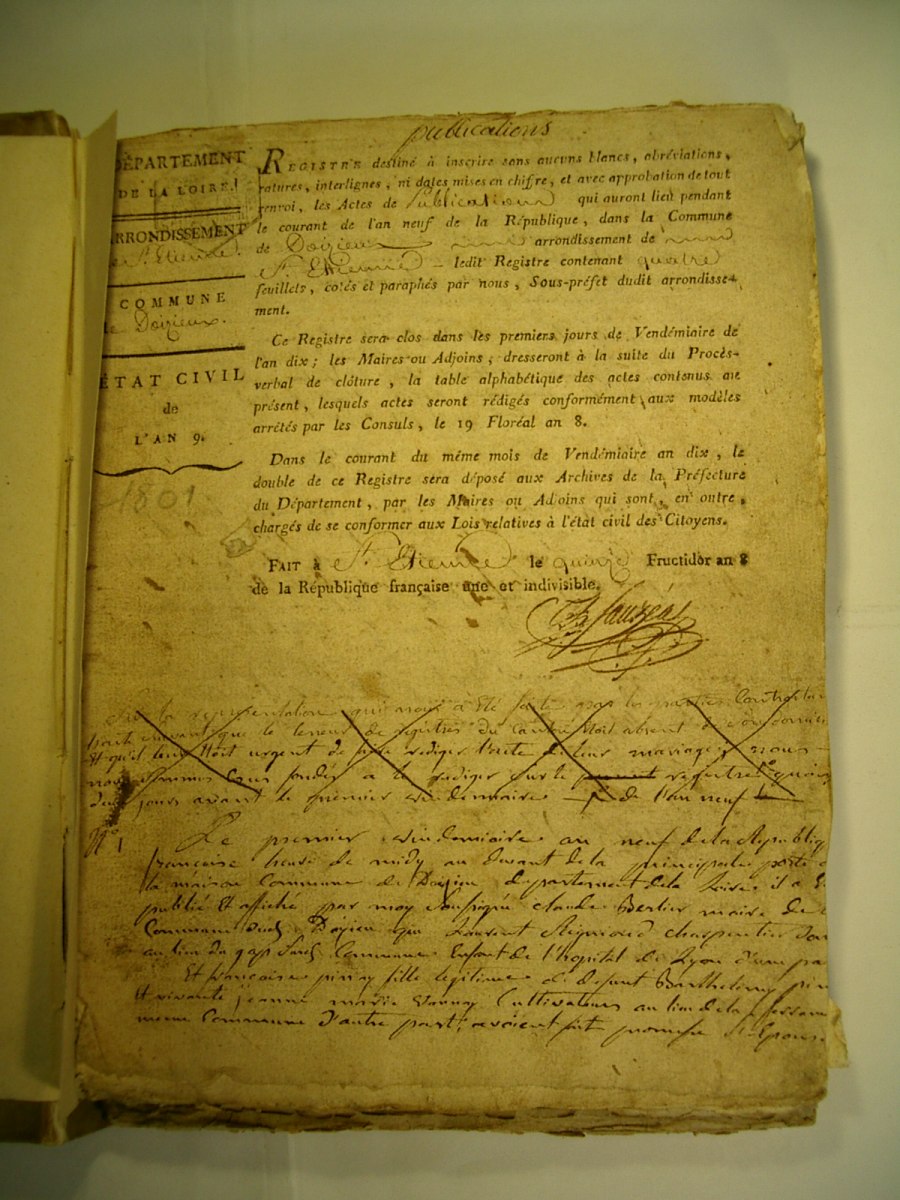 publications
DÉPARTEMENT
DE LA LOIRE.
ARRONDISSEMENT
de St. Etienne.
COMMUNE
de Doizieux.
ÉTAT CIVIL
de
L'AN 9.
1801
REGISTRE destiné à inscrire sans aucuns blancs, abréviations,
ratures, interlignes, ni dates mises en chiffre, et avec approbation de tout
renvoi, les Actes de Publications qui auront lieu pendant
le courant de l'an neuf de la République, dans la Commune
de Doizieux arrondissement de
St. Etienne ledit Registre contenant quatre
feuillets, cotés et paraphés par nous, Sous-préfet dudit arrondisse-
ment.
Ce Registre sera clos dans les premiers jours de Vendémiaire de
l'an dix; les Maires ou Adjoins, dresseront à la suite du Procès-
verbal de clôture, la table alphabétique des actes contenus au
présent, lesquels actes seront rédigés conformément aux modèles
arrêtés par les Consuls, le 19 Floréal an 8.
Dans le courant du même mois de Vendémiaire an dix, le
double de ce Registre sera déposé aux Archives de la Préfecture
du Département, par les Maires ou Adjoins qui sont, en outre,
chargés de se conformer aux Lois relatives à l'état civil des Citoyens.
FAIT à St. Etienne le quinze Fructidor an 8
de la République française une et indivisible.
Sur la representation qui nous a Eté faite par les parties Contractan
que le teneur de registres du Canton Etoit absent
Et qu'il leur Etoit urgent de faire rediger l'acte de leur mariage nous
a le rediger sur le present registre
jours avant le premier vendemiaire de l'an neuf
N° 1
Le premier vendemiaire an neuf de la Republiq
francoise heure de midy au devant de la principale porte d
la maison Commune de Doizieu departement de la Loire il a E
publié Et affiché par moy soussigné claude Berlier maire de
Commune dud. Doizieu que Laurent Reymond charpentier
au lieu du gap Commune Enfant de l'hopital de Lyon d'une pa
Et francoise pinay fille legitime de defunt Barthelemy pin
Et vivante jeanne marie Cultivateurs au lieu de la
meme Commune d'autre part, avoient fait promesse